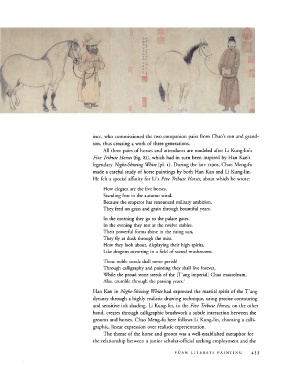 ince, who commissioned the two companion pairs from Chao's son and grand-
son, thus creating a work of three generations.
All three pairs of horses and attendants are modeled after Li Kung-lin's
Five Tribute Horses (fig. 83), which had in turn been inspired by Han Kan's
legendary Night-Shining White (pl. 1). During the late 1290s, Chao Meng-fu
made a careful study of horse paintings by both Han Kan and Li Kung-lin.
He felt a special affinity for Li's Five Tribute Horses, about which he wrote:
How elegant are the five horses,
Standing free in the autumn wind.
Because the emperor has renounced military ambition,
They feed on grass and grain through beautiful years.
In the morning they go to the palace gates,
In the evening they rest at the twelve stables.
Their powerful forms shine in the rising sun,
They fly at dusk through the mist.
How they look about, displaying their high spirits,
Like dragons cavorting in a field of scared mushrooms.
These noble steeds shall never perish!
Through calligraphy and painting they shall live forever,
While the proud stone steeds of the [T'ang imperial] Chao mausoleum,
Alas, crumble through the passing years.
Han Kan in Night-Shining White had expressed the martial spirit of the T'ang
dynasty through a highly realistic drawing technique, using precise contouring
and sensitive ink shading. Li Kung-lin, in the Five Tribute Horses, on the other
hand, creates through calligraphic brushwork a subtle interaction between the
grooms and horses. Chao Meng-fu here follows Li Kung-lin, choosing a calli-
graphic, linear expression over realistic representation.
The theme of the horse and groom was a well-established metaphor for
the relationship between a junior scholar-official seeking employment and the
YÜAN LITERATI PAINTING 433